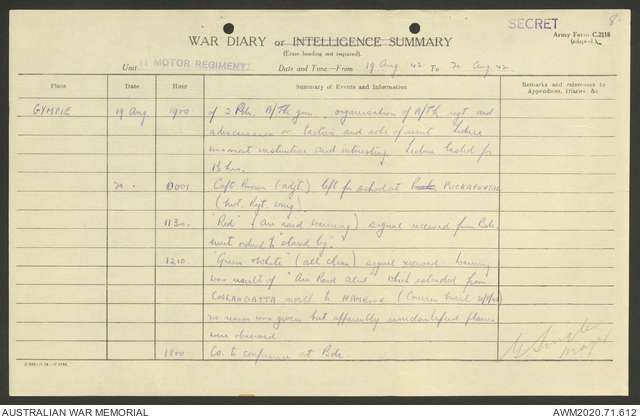 SECRET
8.
Army Form C.2118
(adapted).
WAR DIARY or INTELLIGENCE SUMMARY
(Erase heading not required).
Unit 11 MOTOR REGIMENT. Date and Time—From 19 Aug 42 To 20 Aug. 42
Place Date Hour Summary of Events and Information Remarks and references to
Appendices, Diaries, &c.
GYMPIE 19 Aug 1900 of 2 Pdr. A/Tk gun. organisation of A/Tk regt. and
a discussion on tactics and role of unit. Lecture
was most instructive and interesting. Lecture lasted for
1½ hrs.
20. 0001 Capt Brown (adjt) left for school at PUCKAPUNYAL
(Mot. Regt. wing)
1130. "Red" (Air raid warning) signal received from Bde.
unit ordered to "stand by".
1210. "Green & White" (all clear) signal received. Warning
was result of "Air Raid alert" which extended from
COOLANGATTA north to NAMBOUR (Courier Mail
no reason was given but apparently unidentified planes
were observed
1900 Co. to conference at Bde.
Major
AUSTRALIAN WAR MEMORIAL AWM2020.71.612